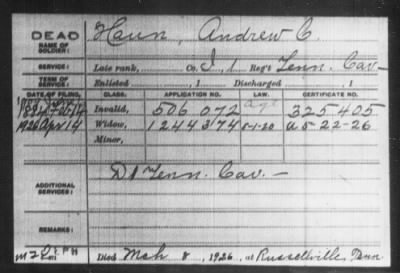 DEAD
NAME OF SOLDIER: Haun, Andrew C.
SERVICE: Late rank, Co. I, 1 Reg't Tenn. Cav
TERM OF SERVICE: Enlisted , 1 Discharged , 1
DATE OF FILING. CLASS. APPLICATION NO. LAW. CERTIFICATE NO.
1884 14 Invalid, 506 072 agt 325 405
1926 Apr 14 Widow, 1244374 5-1-20 A 5-22-26
Minor,
ADDITIONAL SERVICES: D 1 Tenn. Cav. -
REMARKS:
Died Mch 8, 1926, at Russellville, Tenn